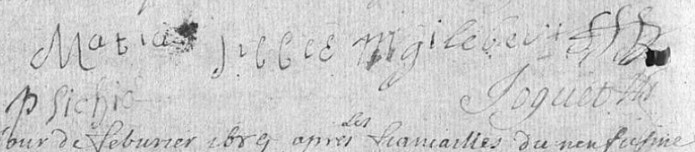 Matia jillie M gilebert
p sichie Joguet
jour de feburier 1689 apres les fiancailles du neufiesme